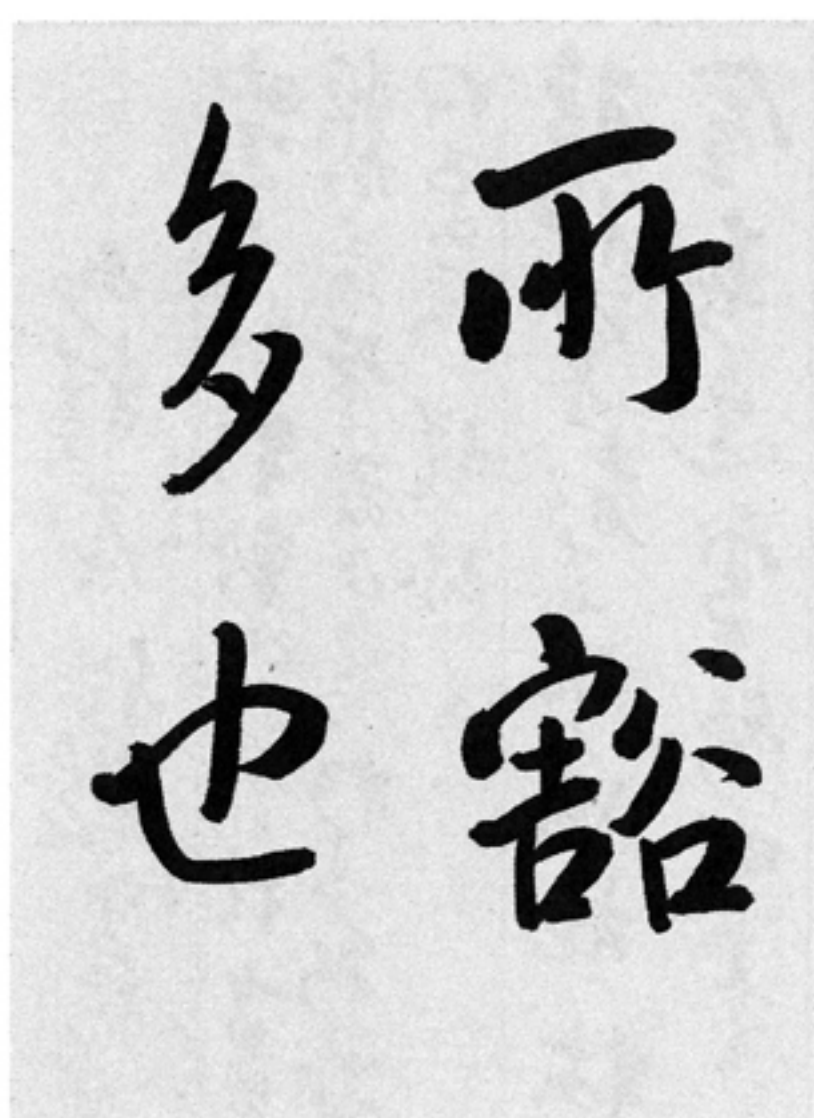 所豁
多也